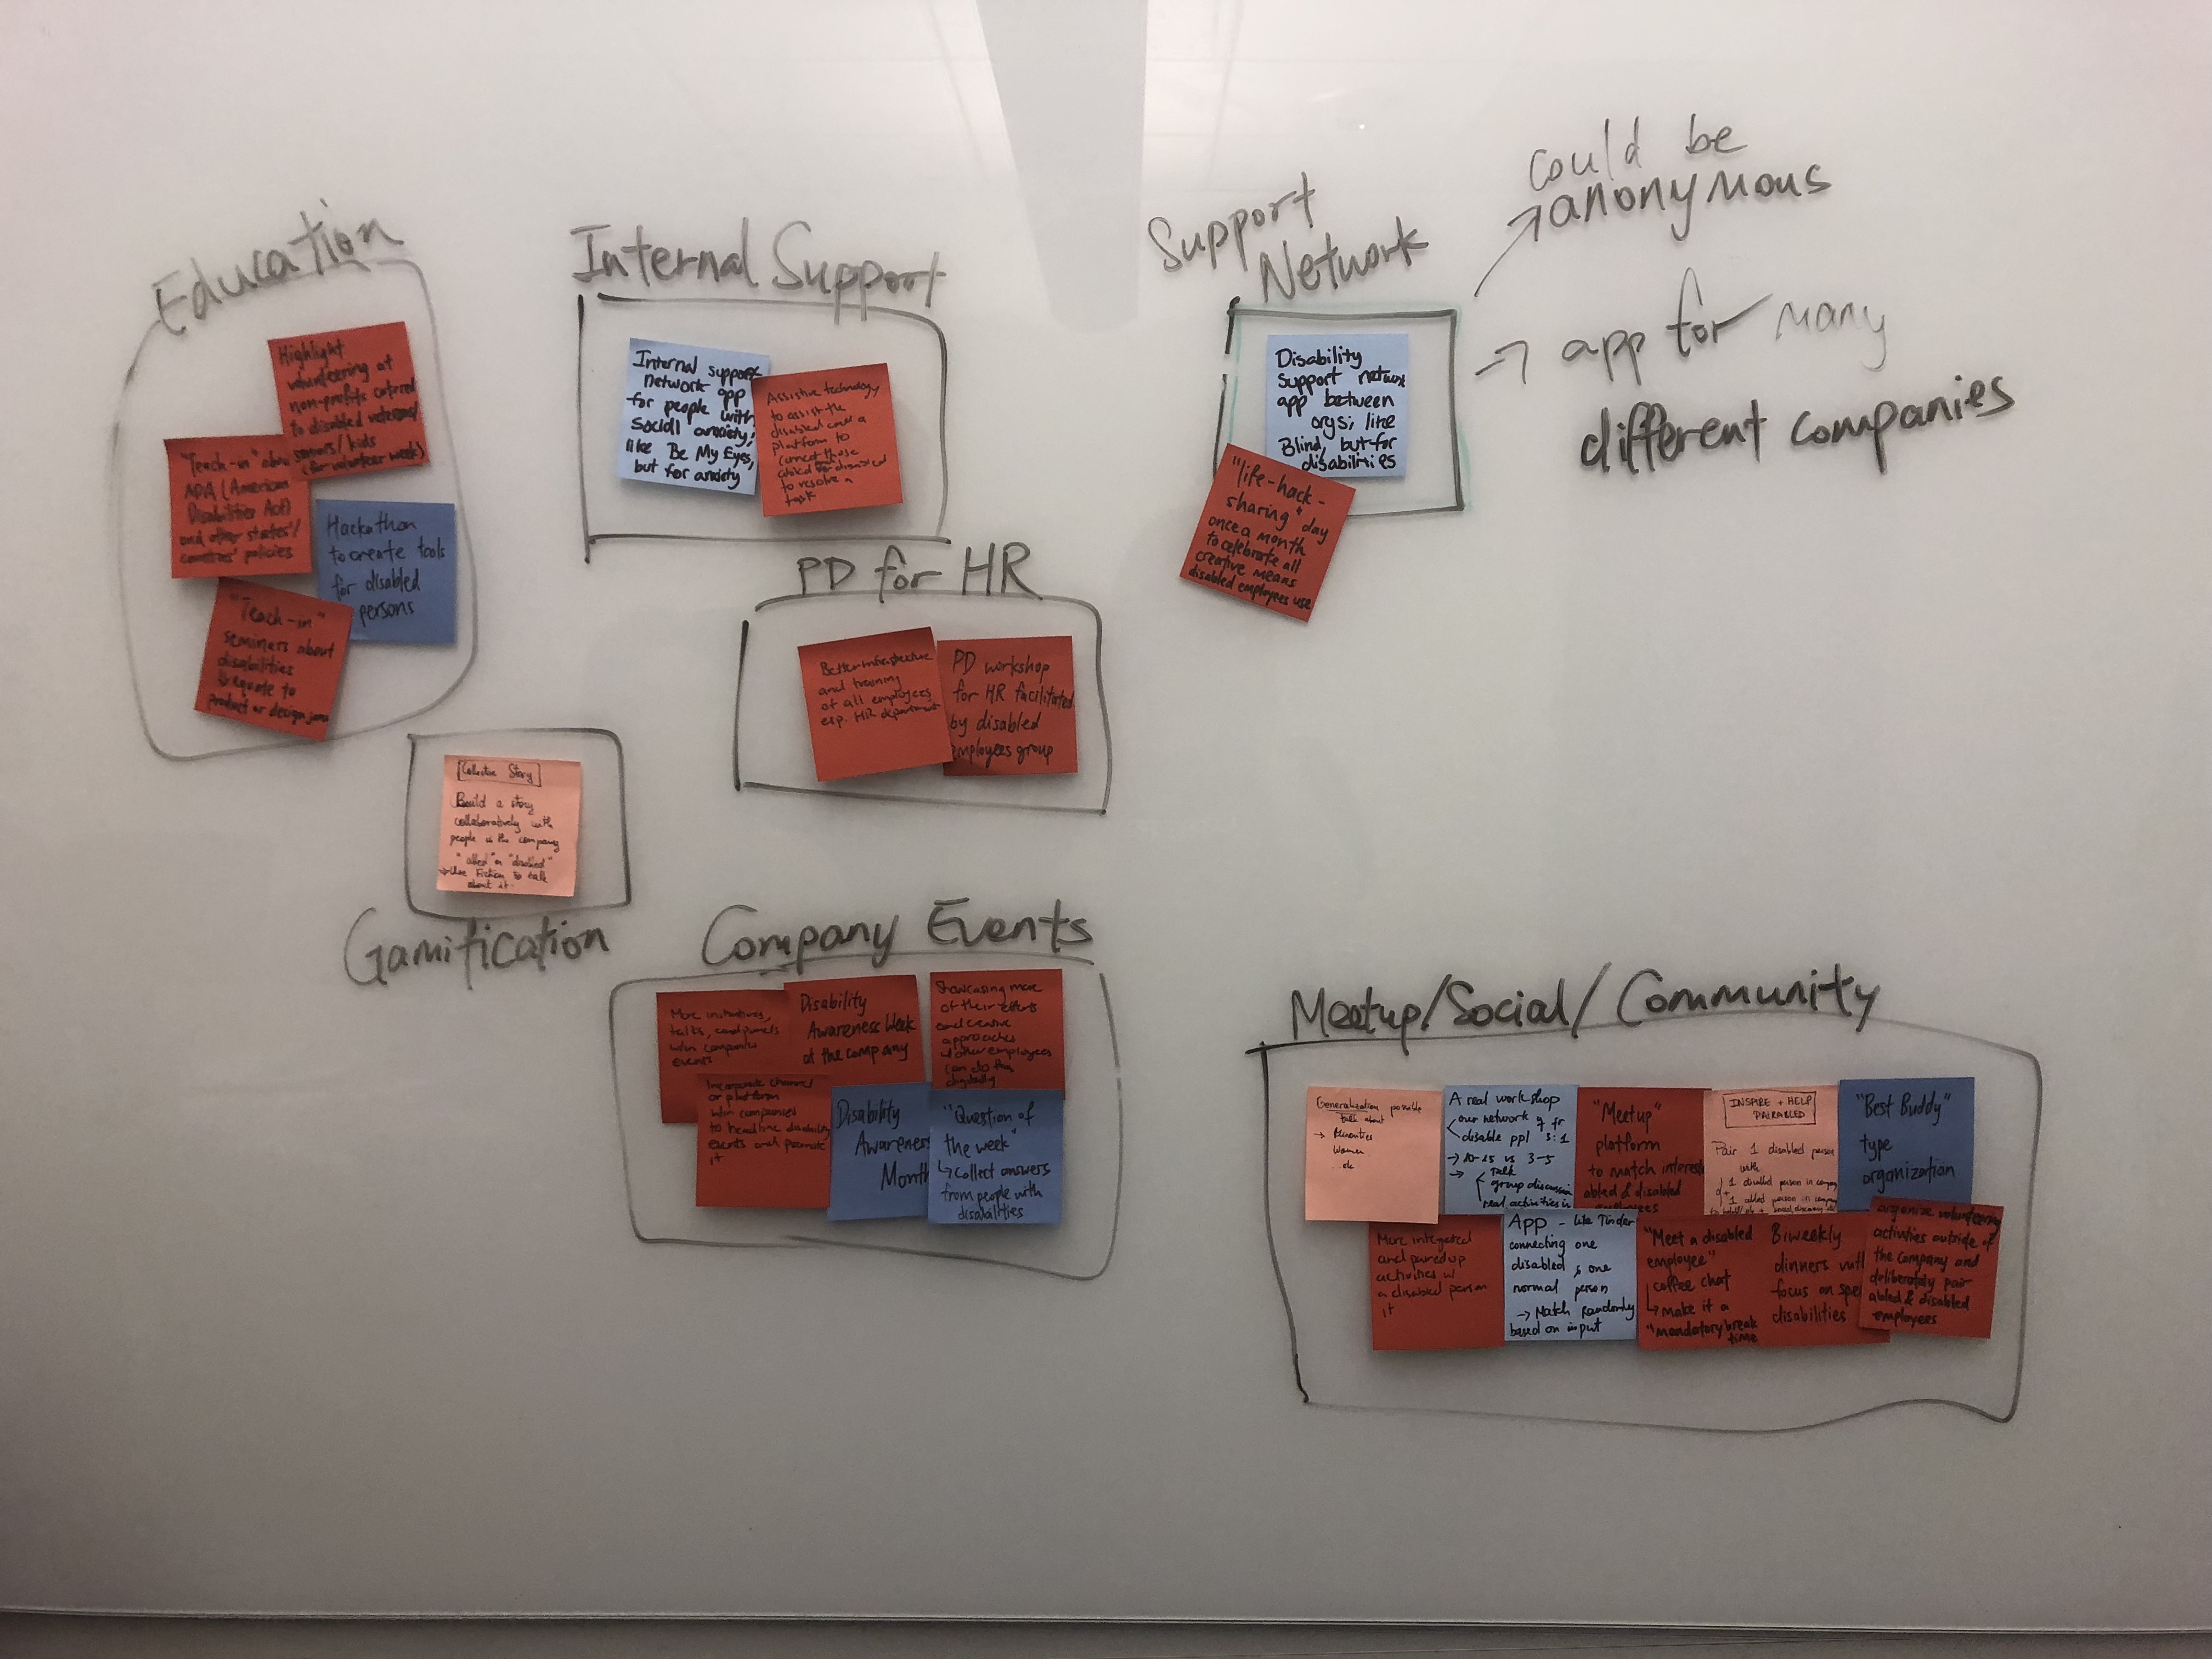 Education
Highlight
volunteering at
non-profits catered
to disabled veterans/
seniors/kids
(for volunteer week)
"Teach-in"
ADA (American
Disabilities Act)
and other states'/
countries' policies
Hackathon
to create tools
for disabled
persons
"Teach-in"
seminars about
disabilities
equate to
product or design jams
Internal Support
Internal support
network app
for people with
social anxiety;
like Be My Eyes,
but for anxiety
Assistive technology
to assist the
disabled
platform to
connect those
abled disabled
to resolve a
task
Support
Network
could be
→ anonymous
→ app for many
different companies
Disability
support network
app between
orgs; like
Blind, but for
disabilities
"life-hack-
sharing" day
once a month
to celebrate all
creative means
disabled employees use
PD for HR
Better infrastructure
and training
of all employees
esp. HR department
PD workshop
for HR facilitated
by disabled
employees group
[Collective Story]
Build a story
collaboratively with
people in the company
"abled" "disabled"
→ Use Fiction to talk
about it.
Gamification
Company Events
More initiatives,
talks, and panels
w/in companies
events
Disability
Awareness Week
at the company
Showcasing more
of their efforts
and creative
approaches
other employees
can do this
digitally
Incorporate channel
or platform
w/in companies
to headline disability
events and promote
it
Disability
Awareness
Month
"Question of
the week"
↳ collect answers
from people with
disabilities
Meetup/Social/Community
Generalization possible
talk about
→ Minorities
Women
..etc
A real workshop
our network
disable ppl 3:1
→ 10-15 vs 3-5
→ Talk
group discussion
real activities in
"Meetup"
platform
to match interest
abled & disabled
employees
INSPIRE + HELP
PAIRABLED
Pair 1 disabled person
with
1 disabled person in company
1 abled person in company
"Best Buddy"
type
organization
More integrated
and paired up
activities w/
a disabled person
it
App - like Tinder
connecting one
disabled & one
normal person
→ Match Randomly
based on input
"Meet a disabled
employee"
coffee chat
↳ make it a
"mandatory break
time
Biweekly
dinners
focus on
disabilities
organize volunteering
activities outside of
the company and
deliberately pair
abled & disabled
employees